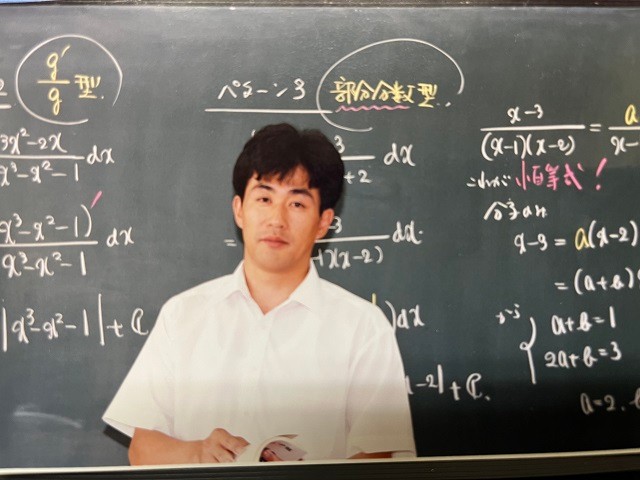 g'/g 型.
3x²-2x/x³-x²-1 dx
x³-x²-1)'/x³-x²-1 dx
|x³-x²-1|+C
パターン3 部分分数型.
3/+2 dx
= -3/-1)(x-2) dx.
)dx
x-2|+C.
x-3/(x-1)(x-2) = a/x-
これが恒等式!
x-3=a(x-2)
=(a+b)
a+b=1
2a+b=3
a=2.